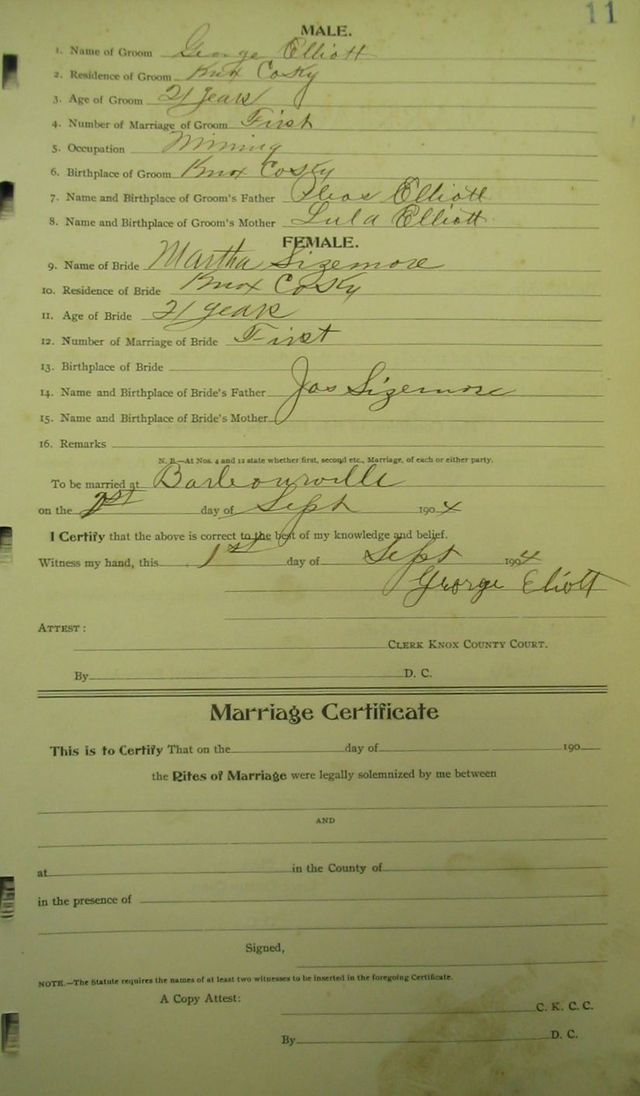 11
MALE.
1. Name of Groom George Elliott
2. Residence of Groom Knox Co Ky
3. Age of Groom 21 years
4. Number of Marriage of Groom First
5. Occupation Mining
6. Birthplace of Groom Knox Co Ky
7. Name and Birthplace of Groom's Father Elliott
8. Name and Birthplace of Groom's Mother Lula Elliott
FEMALE.
9. Name of Bride Martha Sizemore
10. Residence of Bride Knox Co Ky
11. Age of Bride 21 years
12. Number of Marriage of Bride First
13. Birthplace of Bride
14. Name and Birthplace of Bride's Father Jas Sizemore
15. Name and Birthplace of Bride's Mother
16. Remarks
N. B.—At Nos. 4 and 12 state whether first, second etc., Marriage, of each or either party.
To be married at Barbourville
on the day of Sept 1904
I Certify that the above is correct to the best of my knowledge and belief.
Witness my hand, this 1st day of Sept 1904
George Eliott
ATTEST:
CLERK KNOX COUNTY COURT.
By D. C.
Marriage Certificate
This is to Certify That on the day of 190
the Rites of Marriage were legally solemnized by me between
AND
at in the County of
in the presence of
Signed,
NOTE.—The Statute requires the names of at least two witnesses to be inserted in the foregoing Certificate.
A Copy Attest:
C. K. C. C.
By D. C.